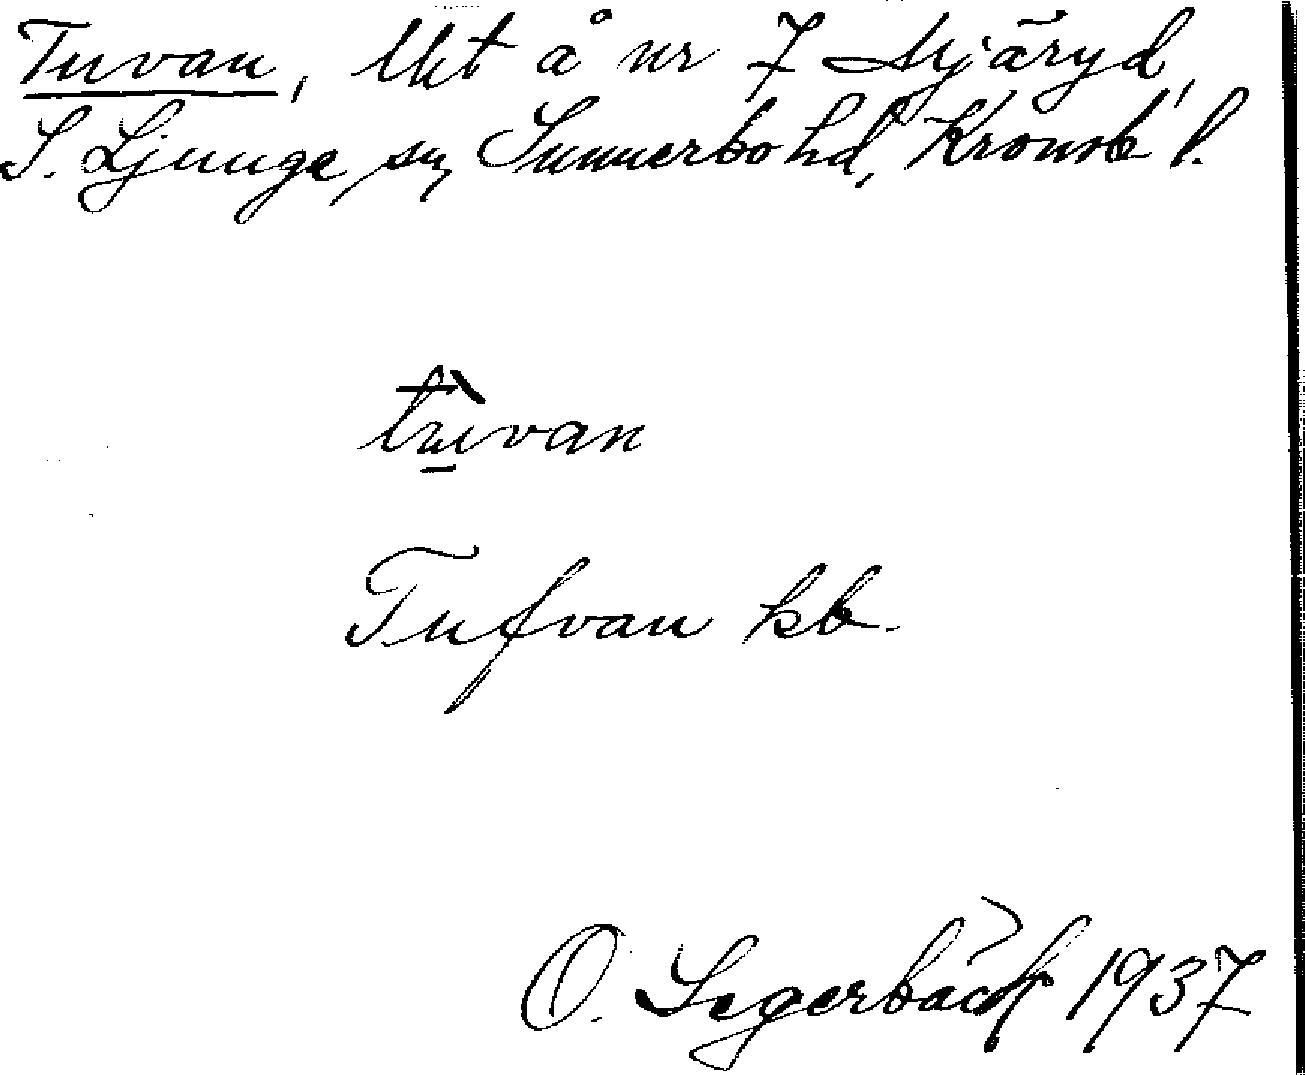 Tuvan, lht å nr 7 Stjäryd,
S. Ljunga sn, Sunnerbo hd, Kronob. l.
tùvan
Tufvan kb.
O. Segerbäck 1937